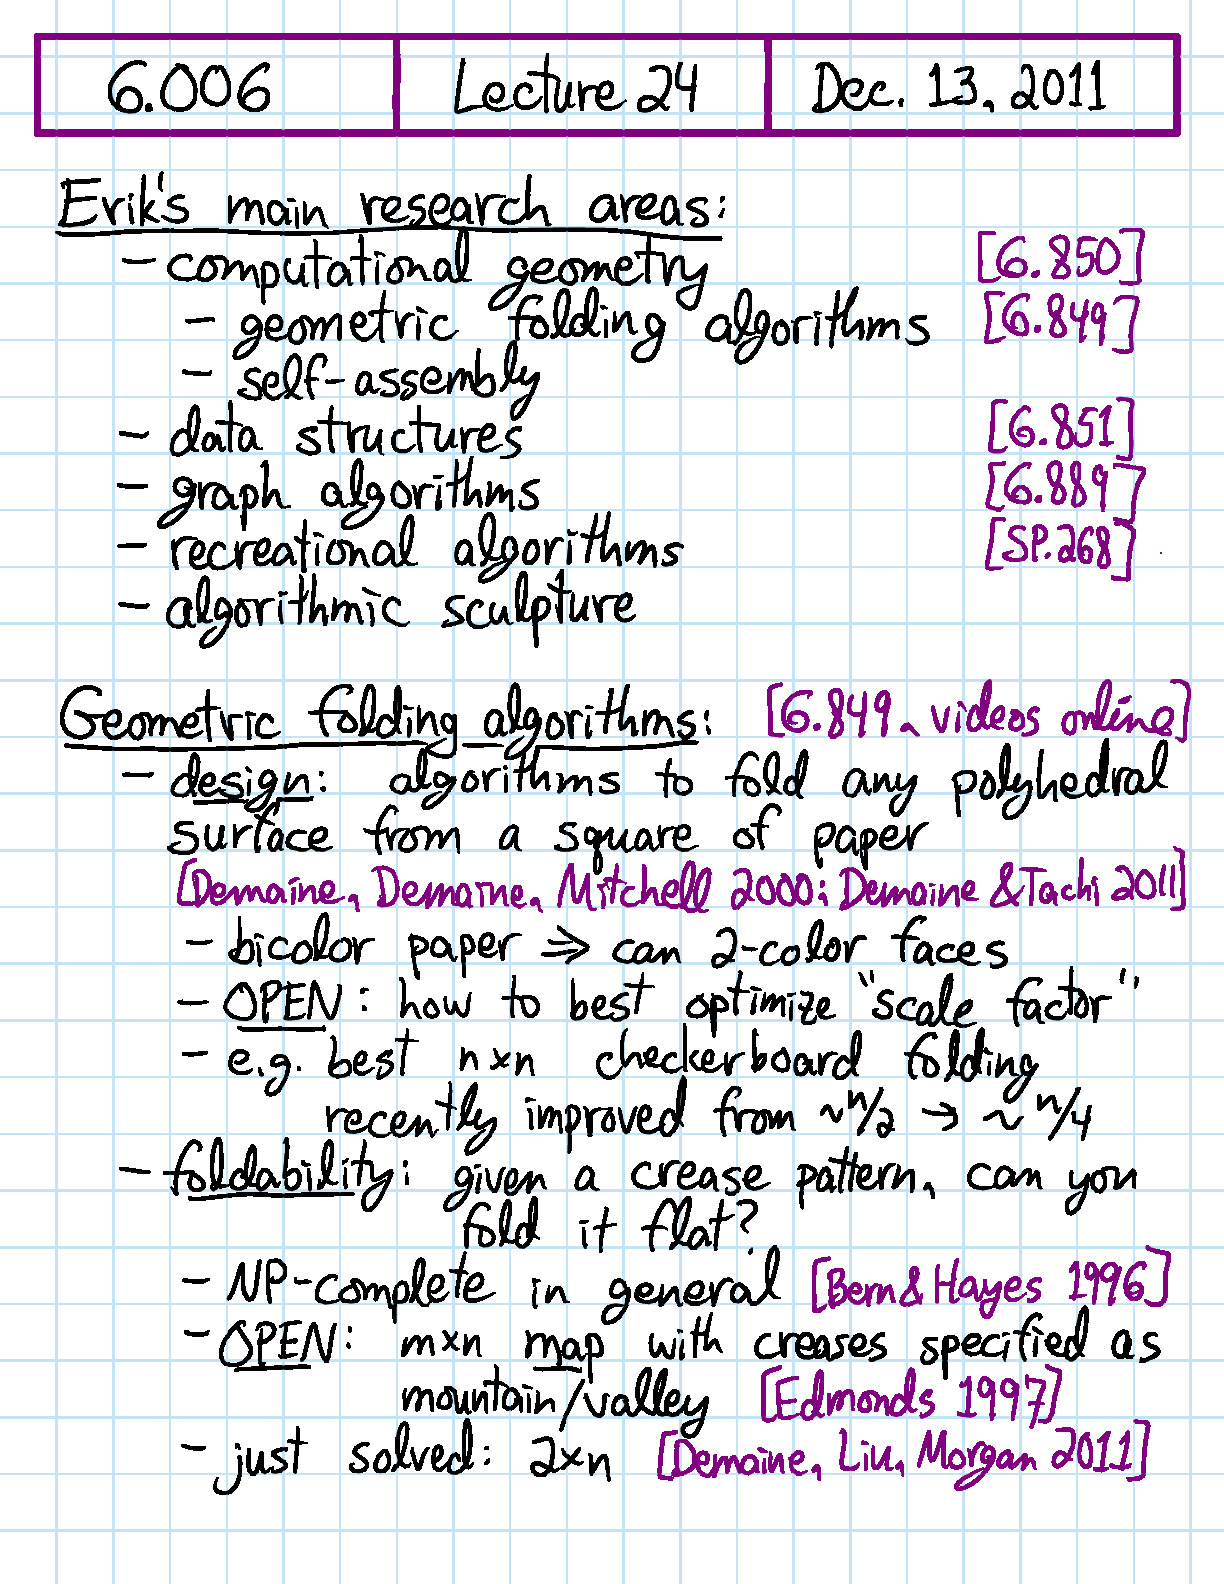 6.006 Lecture 24 Dec. 13, 2011
Erik's main research areas:
- computational geometry [6.850]
- geometric folding algorithms [6.849]
- self-assembly
- data structures [6.851]
- graph algorithms [6.889]
- recreational algorithms [SP.268]
- algorithmic sculpture
Geometric folding algorithms: [6.849, videos online]
- design: algorithms to fold any polyhedral
surface from a square of paper
[Demaine, Demaine, Mitchell 2000; Demaine & Tachi 2011]
- bicolor paper ⇒ can 2-color faces
- OPEN: how to best optimize "scale factor"
- e.g. best n×n checkerboard folding
recently improved from ~n/2 → ~n/4
- foldability: given a crease pattern, can you
fold it flat?
- NP-complete in general [Bern & Hayes 1996]
- OPEN: m×n map with creases specified as
mountain/valley [Edmonds 1997]
- just solved: 2×n [Demaine, Liu, Morgan 2011]